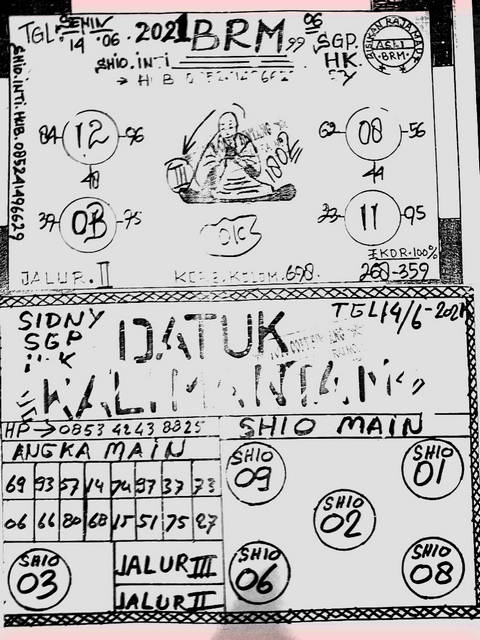 TGL. SENIN
14 . 06 . 2021
BRM 99
06
SHIO.INTI
SGP.
HK.
BISIKAN RAJA MADE
ASLI
BRM
SHIO.INTI. HUB. 085241496629
84 12 96
48
39 0B 75
1002
62 08 56
44
33 11 95
EKOR.100%
268-359
JALUR. II
KODE.KOLOM.698.
SIDNY
SGP
H K
TGL14/6-2021
DATUK
KALIMANTAN
HP → 0853 4243 8825
SHIO MAIN
ANGKA MAIN
69 93 57 14 74 97 37 73
06 66 80 68 15 51 75 27
SHIO
03
JALUR III
JALUR II
SHIO
09
SHIO
01
SHIO
02
SHIO
06
SHIO
08